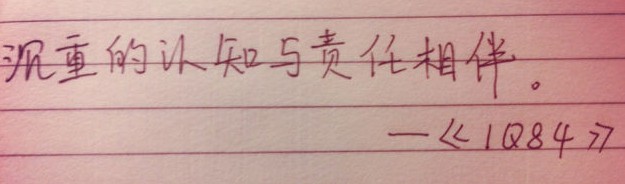 沉重的认知与责任相伴。
—《1Q84》